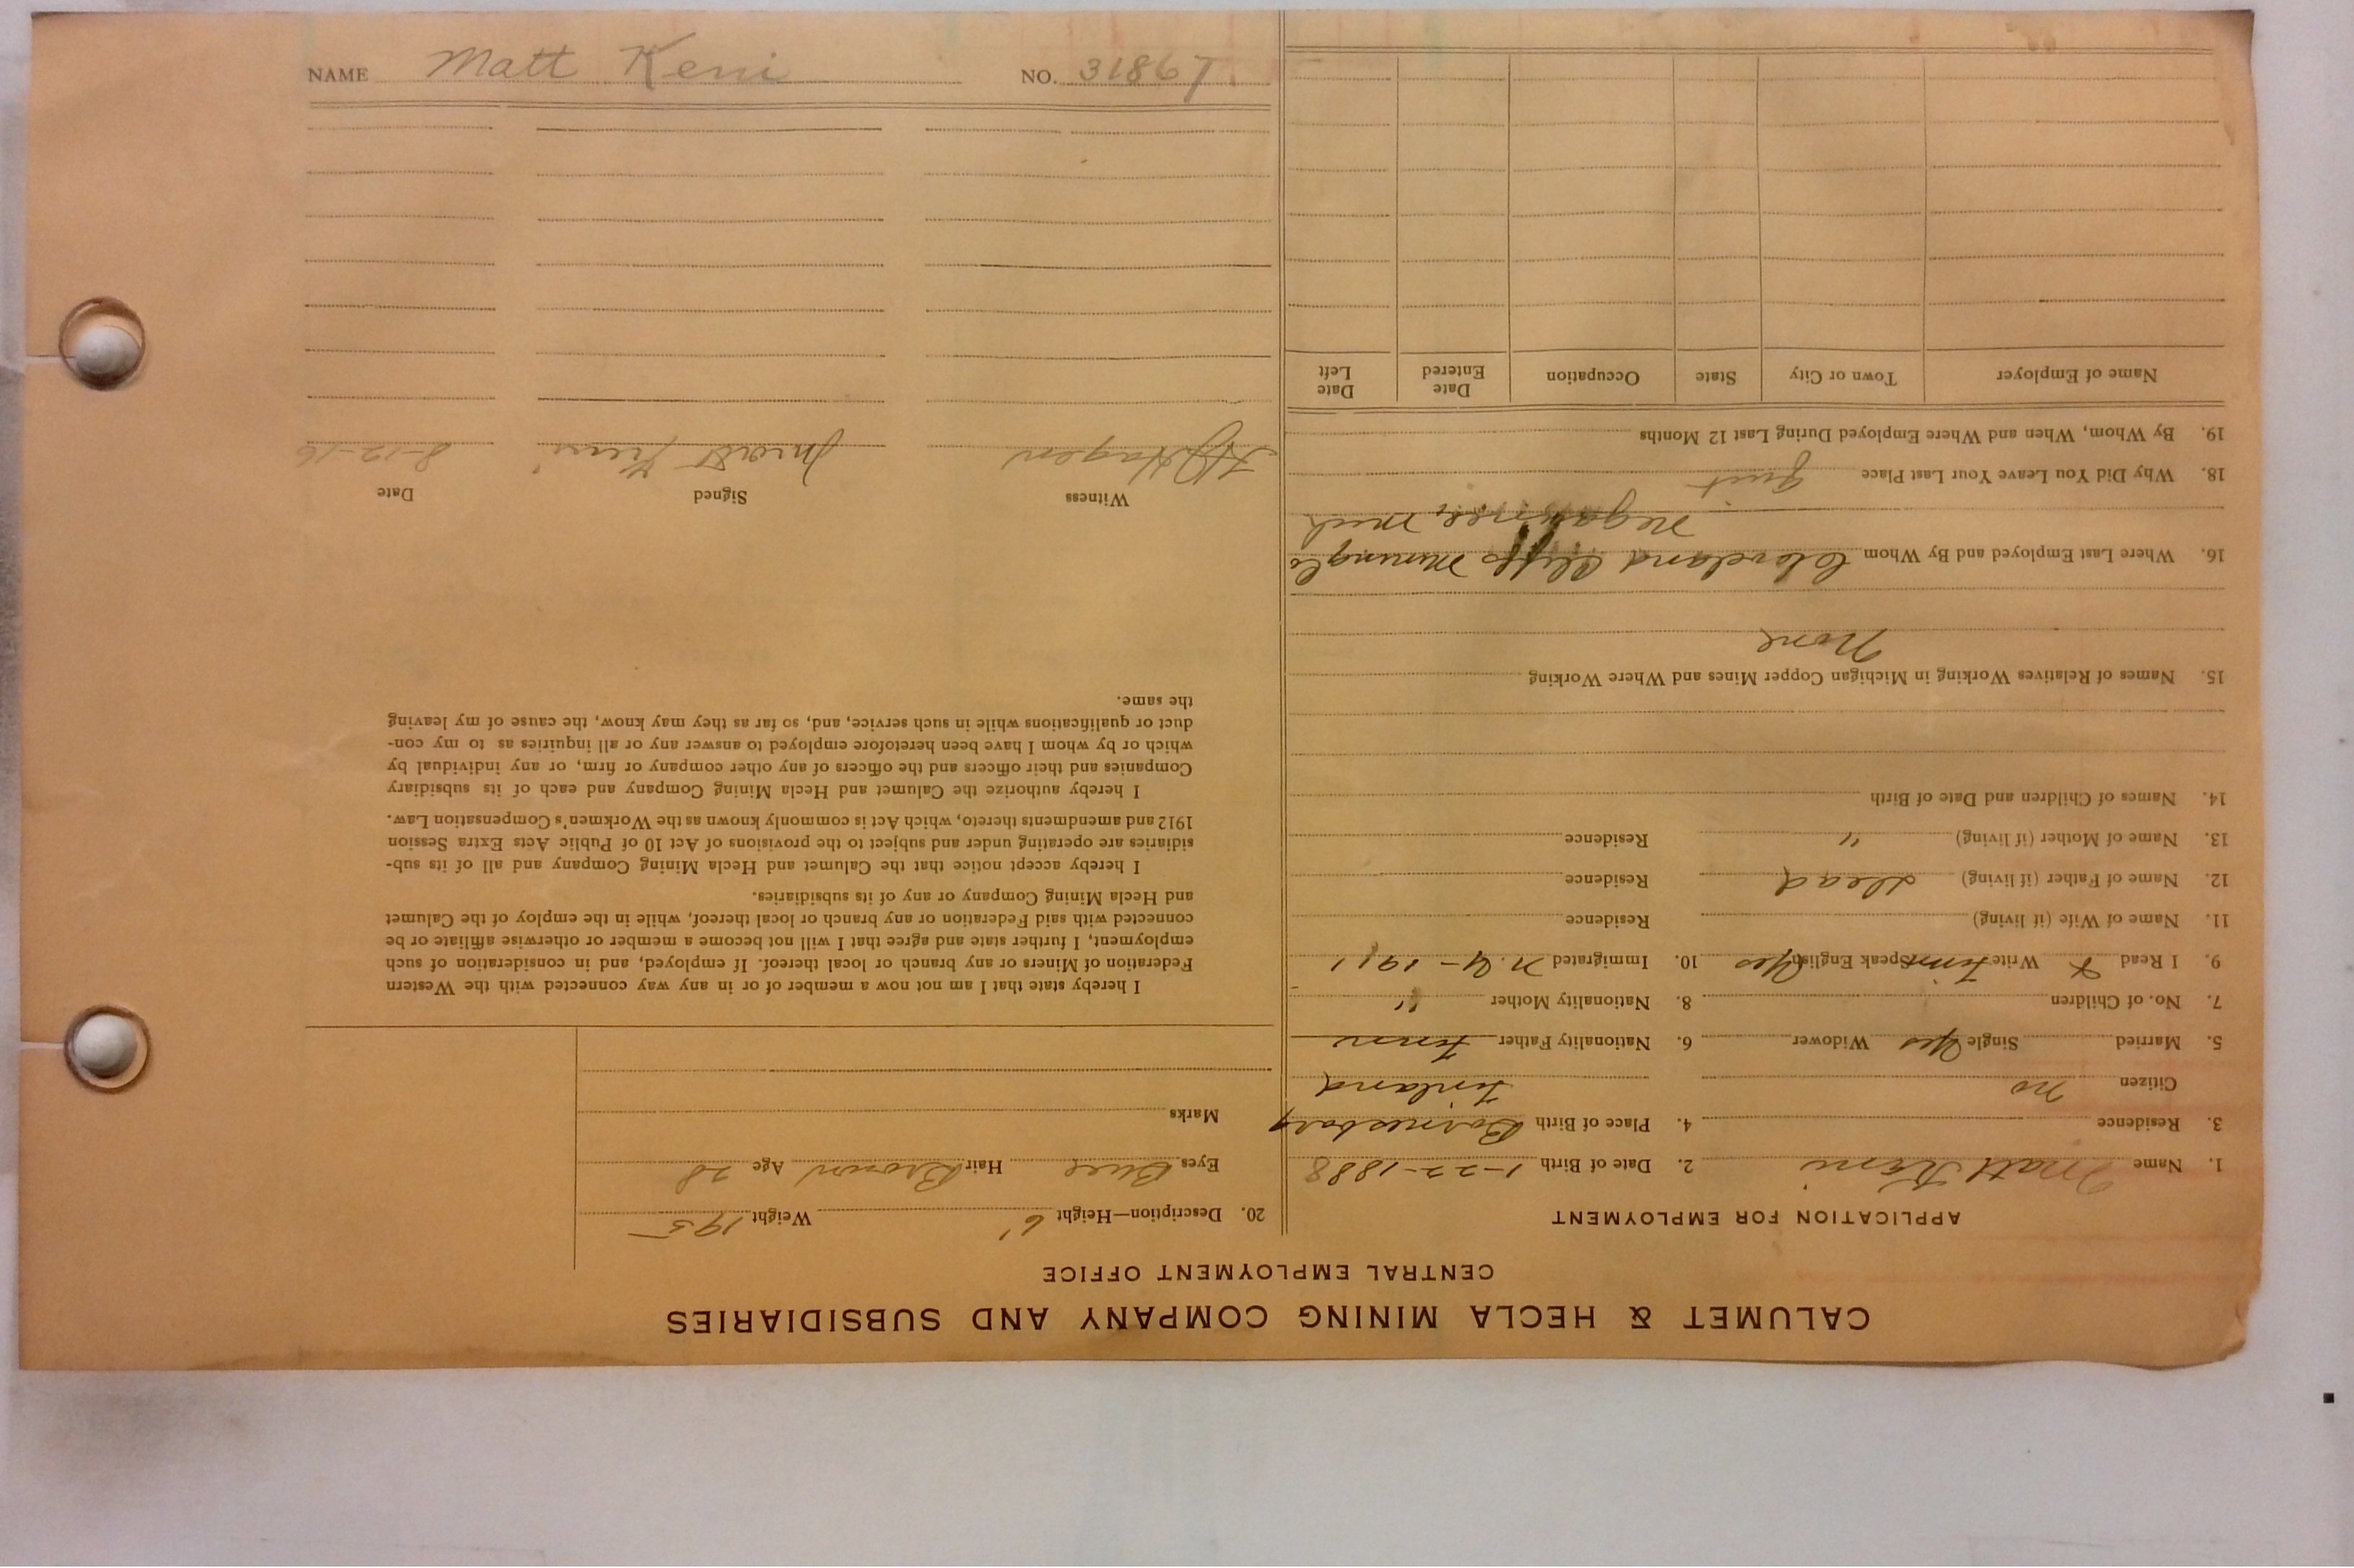 NAME Matt Keni NO. 31867
CALUMET & HECLA MINING COMPANY AND SUBSIDIARIES
CENTRAL EMPLOYMENT OFFICE
APPLICATION FOR EMPLOYMENT
1. Name Matt Keni 2. Date of Birth 1-22-1888
3. Residence 4. Place of Birth
Citizen no Finland
5. Married Single Yes Widower 6. Nationality Father Finn
7. No. of Children 8. Nationality Mother "
9. I Read & Write Finn Speak English Yes 10. Immigrated N.Y - 1911
11. Name of Wife (if living) Residence
12. Name of Father (if living) Dead Residence
13. Name of Mother (if living) " Residence
14. Names of Children and Date of Birth
15. Names of Relatives Working in Michigan Copper Mines and Where Working
None
16. Where Last Employed and By Whom Cleveland Cliffs Mining Co
Negaunee, Mich
18. Why Did You Leave Your Last Place Quit
19. By Whom, When and Where Employed During Last 12 Months
Name of Employer Town or City State Occupation Date Entered Date Left
20. Description—Height 6' Weight 195
Eyes Blue Hair Brown Age 28
Marks
I hereby state that I am not now a member of or in any way connected with the Western
Federation of Miners or any branch or local thereof. If employed, and in consideration of such
employment, I further state and agree that I will not become a member or otherwise affiliate or be
connected with said Federation or any branch or local thereof, while in the employ of the Calumet
and Hecla Mining Company or any of its subsidiaries.
I hereby accept notice that the Calumet and Hecla Mining Company and all of its sub-
sidiaries are operating under and subject to the provisions of Act 10 of Public Acts Extra Session
1912 and amendments thereto, which Act is commonly known as the Workmen's Compensation Law.
I hereby authorize the Calumet and Hecla Mining Company and each of its subsidiary
Companies and their officers and the officers of any other company or firm, or any individual by
which or by whom I have been heretofore employed to answer any or all inquiries as to my con-
duct or qualifications while in such service, and, so far as they may know, the cause of my leaving
the same.
Witness Signed Date
Hagen Matt Keni 8-12-16